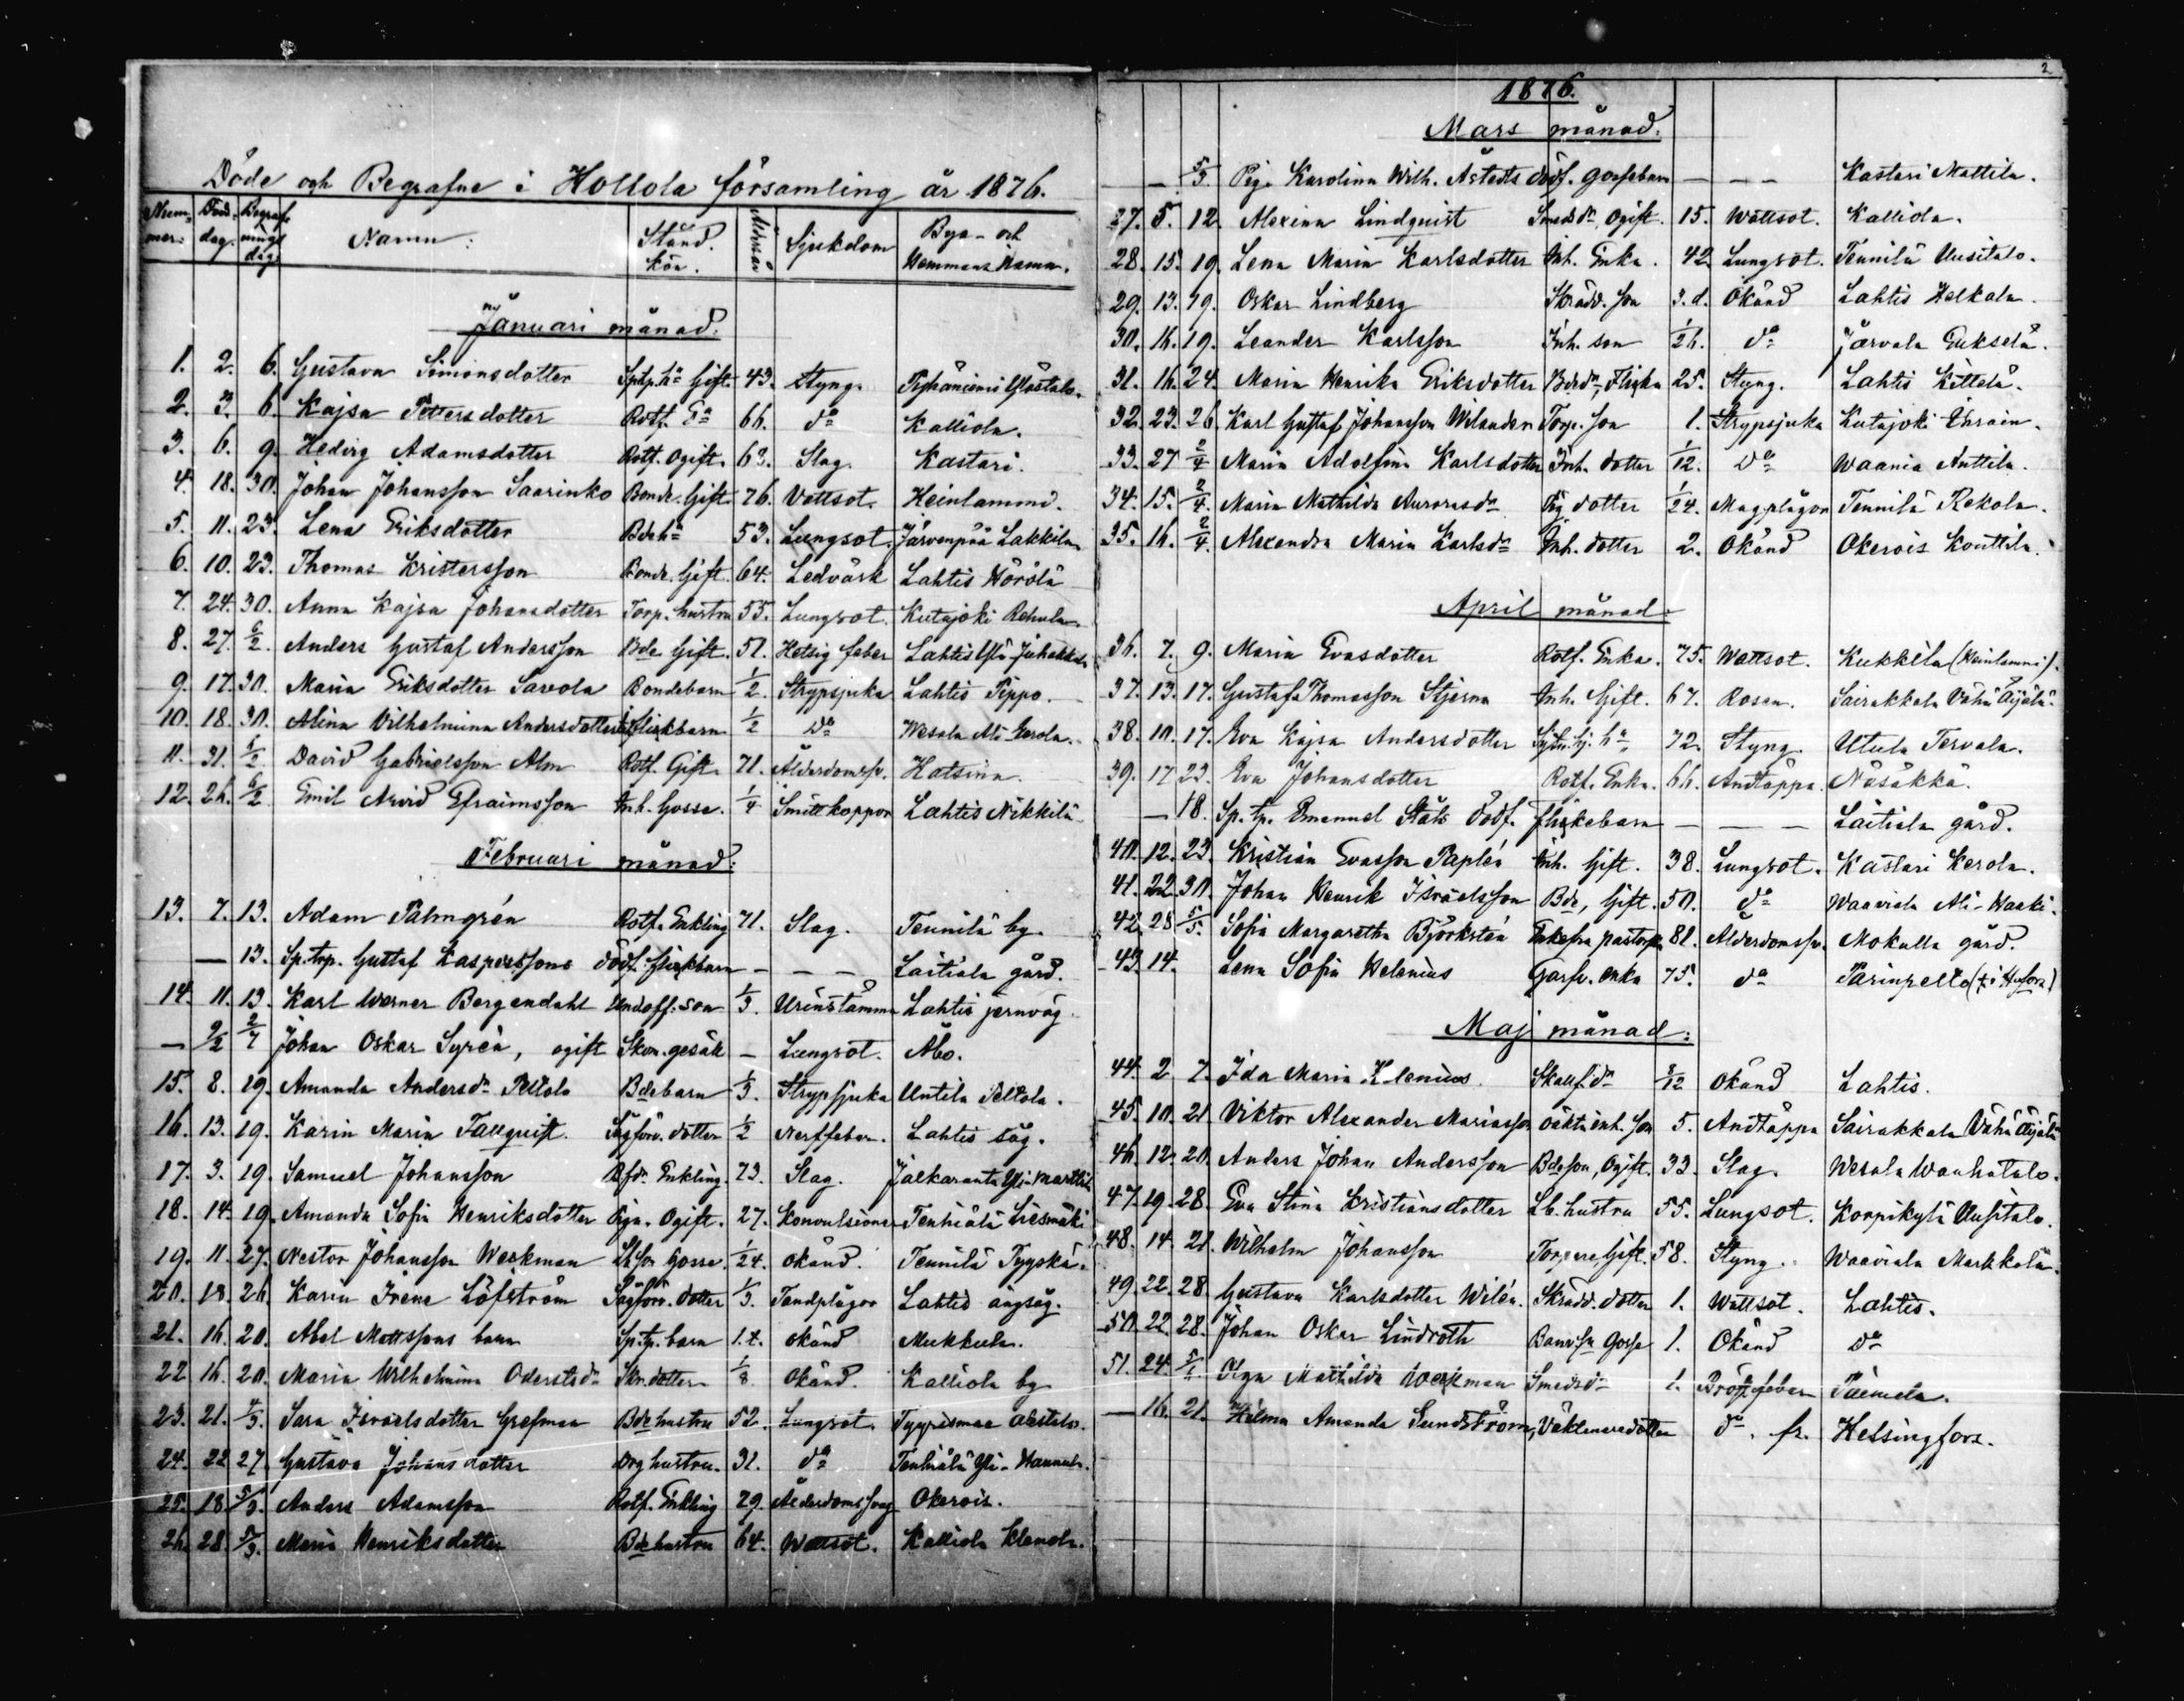 Döde och Begrafne i Hollola församling år 1876.
Num-mer. Död-dag. Begraf-nings dag. Namn: Stånd. kön. Ålder år Sjukdom Bys- och Hemmans Namn.
Januari månad:
1. 2. 6. Gustava Simonsdotter Sptp. ha Gift. 43. Styng.
2. 3. 6. Kajsa Pettersdotter Rotf. Da 66. da Kalliola.
3. 6. 9. Hedvig Adamsdotter Rotf. Ogift. 63. Slag. Kastari.
4. 18. 30. Johan Johansson Saarinko Bonde. Gift. 76. Vattsot. Heinlammi.
5. 11. 23. Lena Eriksdotter Bdeha 53. Lungsot. Järvenpää Lakkila
6. 10. 23. Thomas Kristersson Bonde. Gift. 64. Ledvärk Lahtis Hörölä
7. 24. 30. Anna Kajsa Johansdotter Torp. hustru 55. Lungsot. Kutajoki Rehula.
8. 27. 6/2. Anders Gustaf Andersson Bde Gift. 51. Hetsig feber Lahtis Yli-Juhakkala
9. 17. 30. Maria Eriksdotter Saxola Bondebarn 1/2. Strypsjuka Lahtis Pippo.
10. 18. 30. Alina Vilhelmina Andersdotter flickbarn 1/2 Da Wesala Ali-Kerola.
11. 31. 6/2 David Gabrielsson Alm Rotf. Gift. 71. Ålderdomssv. Hatsina.
12. 26. 6/2 Emil Arvid Efraimsson Inh. Gosse. 1/4 Smittkoppor Lahtis Nikkilä
Februari månad:
13. 7. 13. Adam Palmgrén Rotf. Enkling 71. Slag. Tennilä by.
— 13. Sp.torp. Gustaf Kasperssons dödf. flickbarn — — — Laitiala gård.
14. 11. 13. Karl Werner Bergendahl Undoff. son 1/3. Urinstämma Lahtis jernväg.
— 2/2 2/7 Johan Oskar Syrén, ogift Skom. gesäll — Lungsot. Åbo.
15. 8. 19. Amanda Andersdr Peltola Bdebarn 1/3. Strypsjuka Untila Peltola.
16. 13. 19. Karin Maria Tallquist. Sågförv. dotter 1/2 Nerffeber. Lahtis såg.
17. 3. 19. Samuel Johansson Enkling. 73. Slag. Jalkaranta Yli-Marttila
18. 14. 19. Amanda Sofia Henriksdotter Piga. Ogift. 27. Konvulsioner Tenhiälä Liesmäki
19. 11. 27. Nestor Johansson Werkman Gosse. 1/24. okänd. Tennilä Tyyskä.
20. 18. 26. Karin Irene Löfström Sågförv. dotter 1/3. Tandplågor Lahtis ångsåg.
21. 16. 20. Abel Mattssons barn Sp.tp. barn 1. t. okänd Mukkula.
22 16. 20. Maria Wilhelmina Oderstsdr Skr. dotter 1/8 okänd. Kalliola by
23. 21. 4/3. Sara Israelsdotter Grefman Bdehustru 52. Lungsot.
24. 22 27. Gustava Johansdotter hustru. 31. da Tenhiälä Yli-Hannula.
25. 18. 5/3. Anders Adamsson Rotf. Enkling 79. Ålderdomssvag Okerois.
26. 28. 5/3. Maria Henriksdotter Bdehustru 64. Wattsot. Kalliola Klemola.
2
1876.
Mars månad:
— 5/3 Pig. Karolina Wilh. Åstedts dödf. gossebarn — — — Kastari Mattila.
27. 5. 12. Alexina Lindquist Smedsdr Ogift. 15. Wattsot. Kalliola.
28. 15. 19. Lena Maria Karlsdotter Inh. Enka. 42. Lungsot. Tennilä Uusitalo.
29. 13. 19. Oskar Lindberg Skrädd. son 3. d. Okänd Lahtis Helkala
30. 16. 19. Leander Karlsson Inh. son 1/26. da Järvala Eukselä.
31. 16. 24. Maria Henrika Eriksdotter Bdedr, Flicka 25. Styng. Lahtis Kittelä.
32. 23. 26 Karl Gustaf Johansson Wilander Torp. son 1. Strypsjuka Kutajoki Uhrain.
33. 27 2/4 Maria Adolfina Karlsdotter Inh. dotter 1/12. Da Waania Anttila.
34. 15. 2/4. Maria Mathilda Aurorasdr Pig dotter 1/24. Magplågor Tennilä Rekola.
35. 16. 2/4. Alexandra Maria Karlsdr Inh. dotter 2. Okänd Okerois Kouttila.
April månad
36. 7. 9. Maria Evasdotter Rotf. Enka. 75. Wattsot. Kukkila (Heinlammi).
37. 13. 17. Gustaf Thomasson Stjerna Inh. Gift. 67. Rosen. Sairakkala Vähä Äijälä.
38. 10. 17. Eva Kajsa Andersdotter 72. Styng. Utula Tervala.
39. 17 23. Eva Johansdotter Rotf. Enka. 66. Andtäppa. Näsäkkä.
— 18. Sp. tp. Emanuel Ståls dödf. flickebarn — — — Laitiala gård.
40. 12. 23. Kristian Evasson Paplén Inh. Gift. 38. Lungsot. Kastari Kerola.
41. 22. 30. Johan Henrik Israelsson Bde, Gift. 50. da Waaviala Ali-Waaki.
42. 28 5/5. Sofia Margaretha Björkstén Enkefru pastorsk. 81. Alderdomssv. Mokulla gård.
43. 14. Lena Sofia Helenius Garfv. enka 75. da Parinpelto (t i Hfors)
Maj månad:
44. 2 7. Ida Maria Helenius. Skallfdr 8/12 okänd Lahtis.
45. 10. 21 Viktor Alexander Mariasson oäkta inh. son 5. Andtäppa Sairakkala Vähä Äijälä
46. 12. 20. Anders Johan Andersson Bdeson, Ogift. 33. Slag. Wesala Wanhatalo.
47. 19. 28. Eva Stina Kristiansdotter Lb. hustru 55. Lungsot. Korpikylä Uusitalo.
48. 14. 21. Wilhelm Johansson Torpare Gift. 58. Styng. Waaviala Markkola.
49. 22. 28 Gustava Karlsdotter Wilén. Skrädd. dotter 1. Wattsot. Lahtis.
50. 22. 28. Johan Oskar Lindroth Gosse 1. Okänd Da
51. 24. Olga Mathilda Werkman Smedsdr 1. Bröstfeber Paimela.
— 16. 21. Hilma Amanda Sundström, Väktaredotter da. fr. Helsingfors.